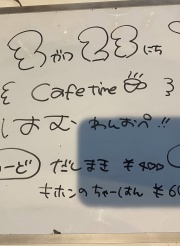 3がつ23にち
Cafe time
はむ わんおぺ!!
ど) だしまき ¥400
キホンのちゃーはん ¥6